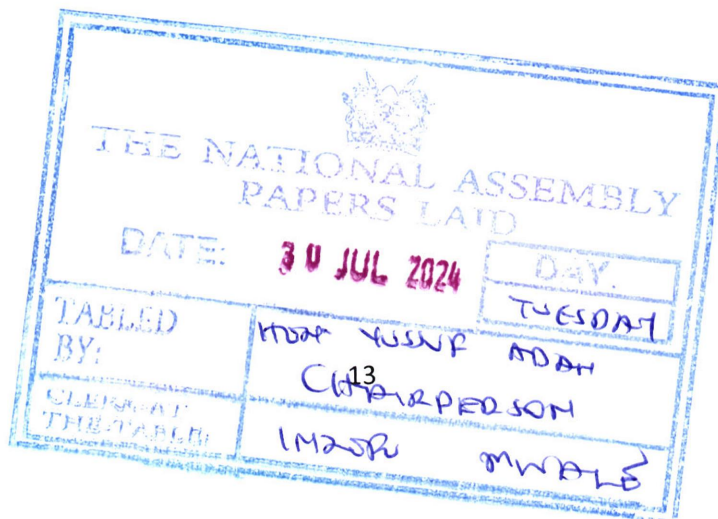 THE NATIONAL ASSEMBLY
PAPERS LAID
DATE: 30 JUL 2024
DAY.
TUESDAY
TABLED
BY:
HON YUSUF ADAN
CHAIRPERSON
13
CLERK AT
THE-TABLE:
MWALE